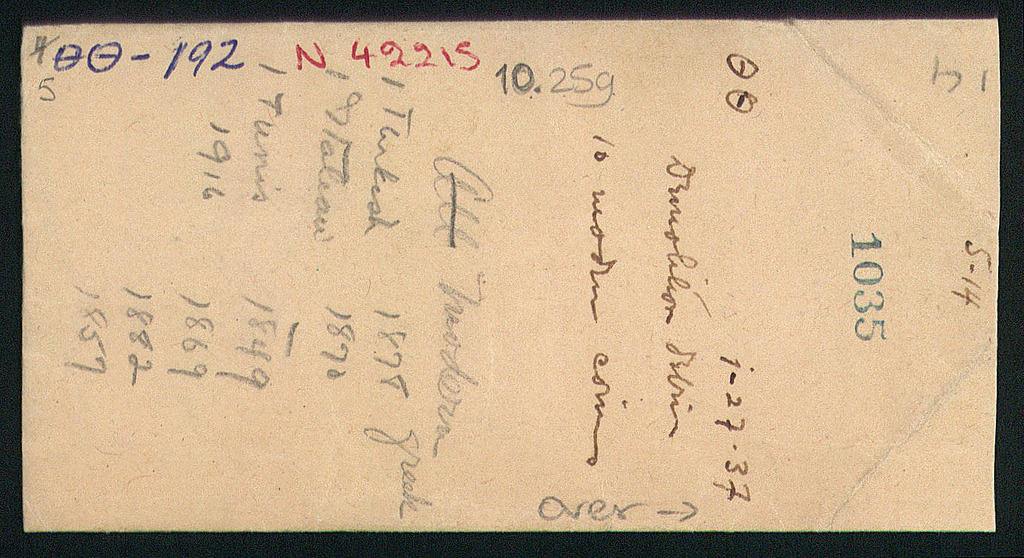 ΘΘ - 192 N 42215
5
10.25g
14
5-14
1035
ΘΘ 1-27-37
Demolition debris
10 modern coins
All modern
1 Turkish 1875 Greek
1 Italian 1870
1 Tunis 1849
1916 1869
1882
1857
over →